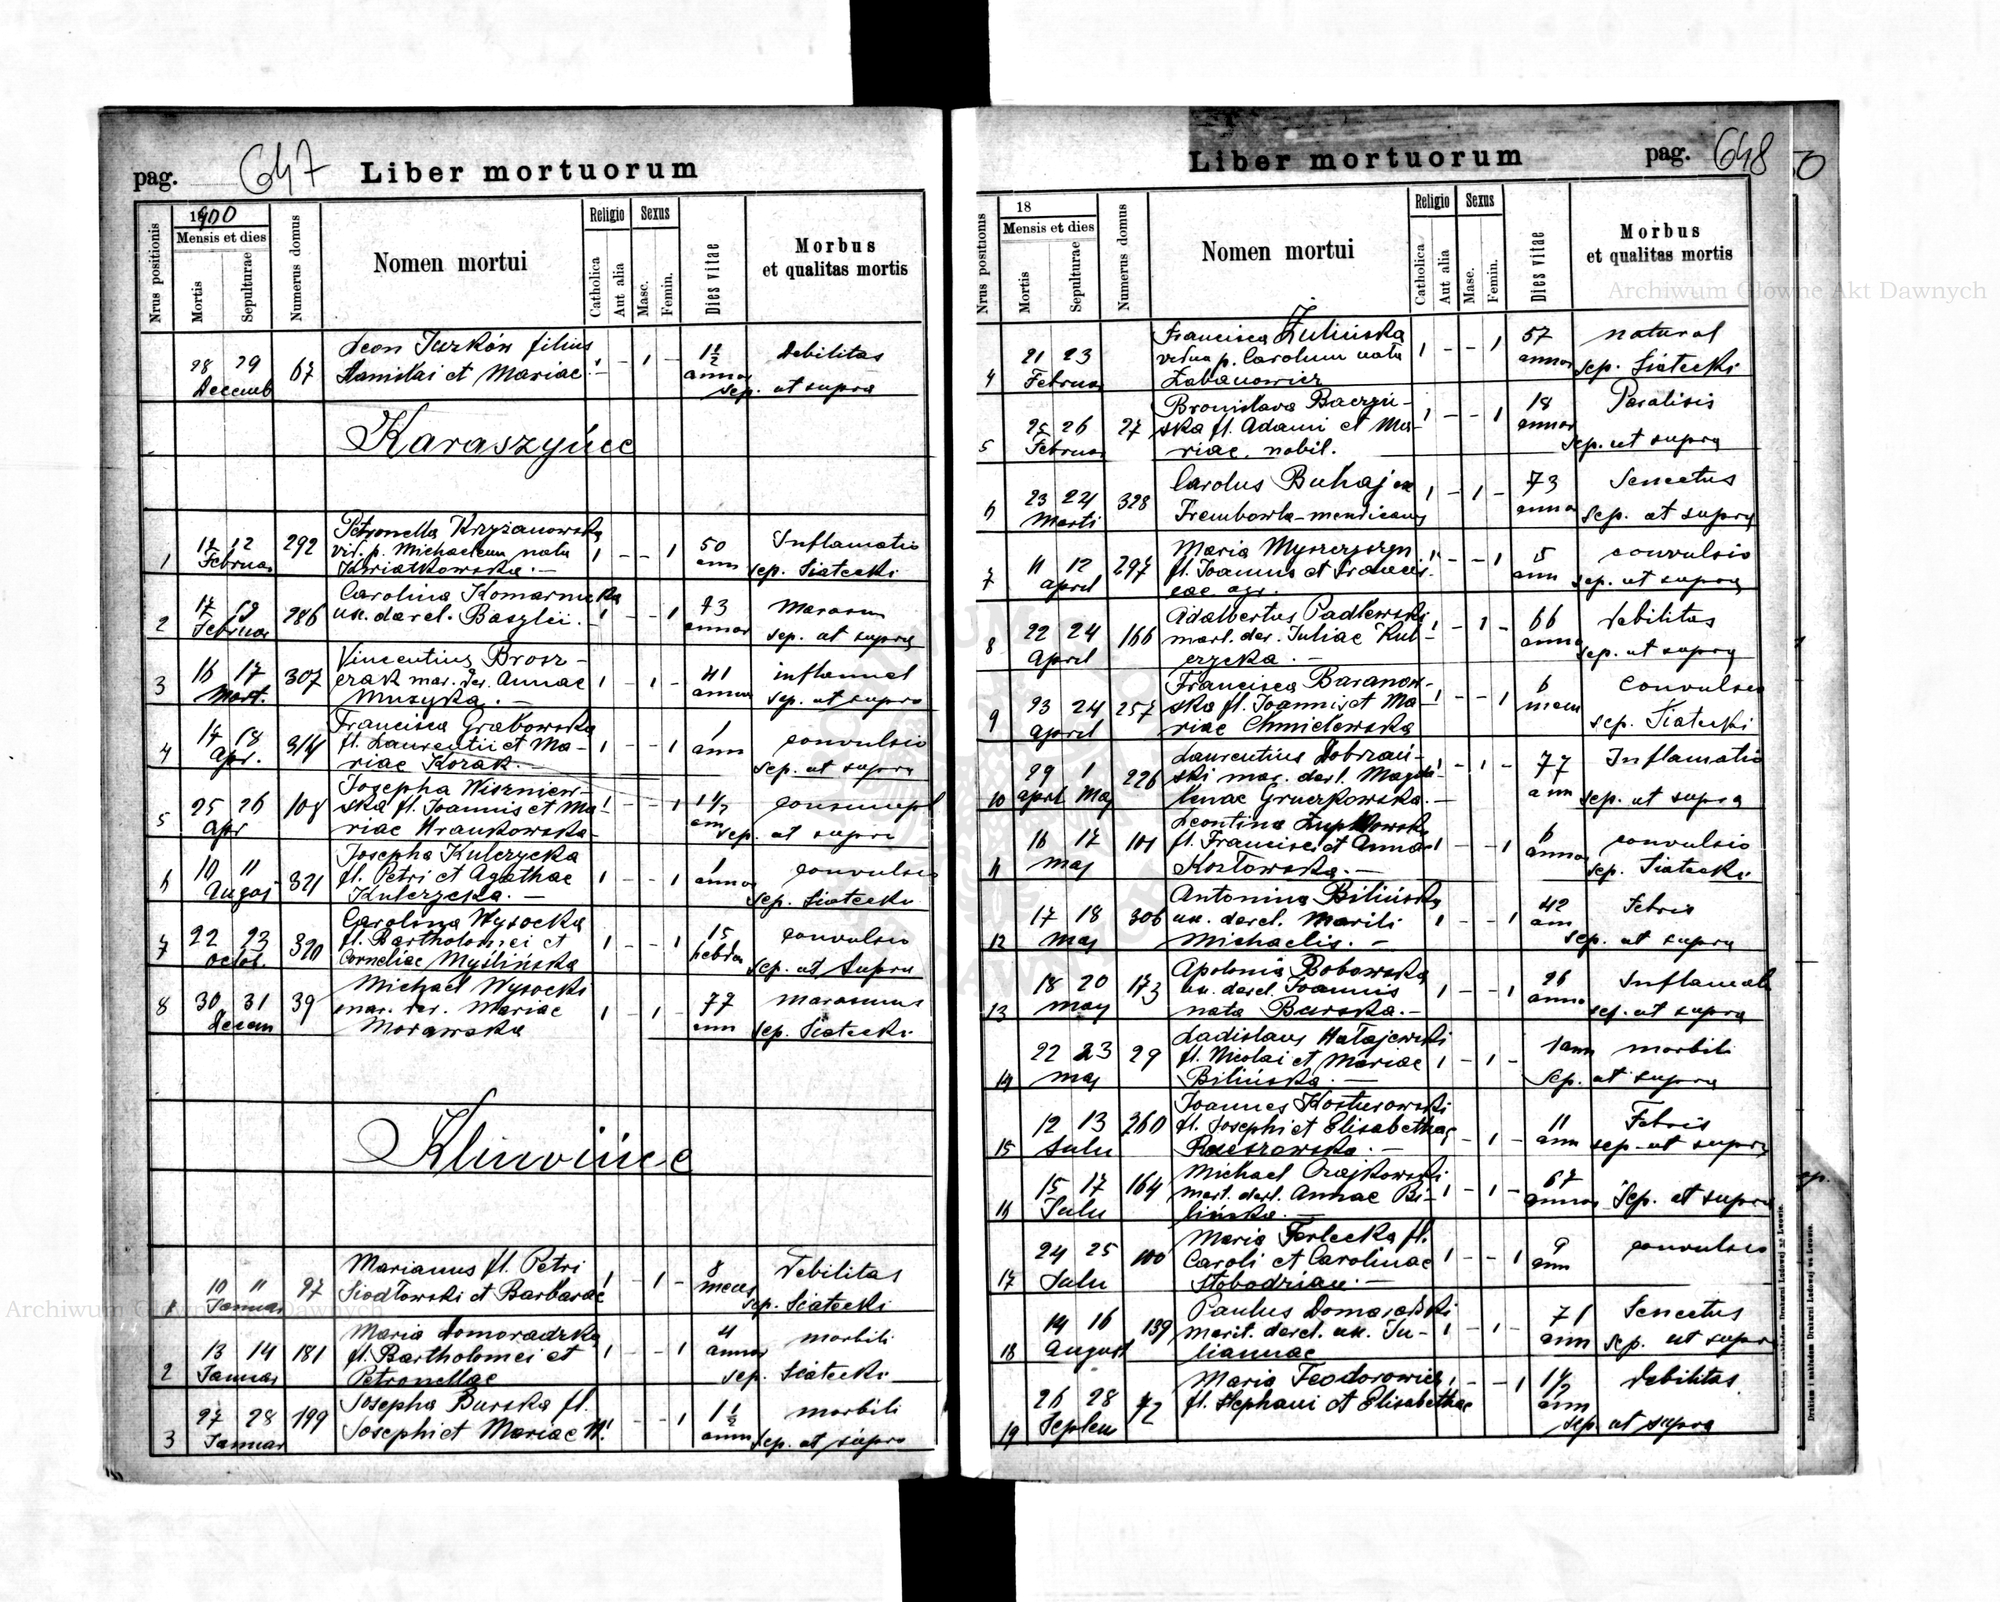 pag. 647 Liber mortuorum
1900
Nrus positionis
Mensis et dies
Mortis
Sepulturae
Numerus domus
Nomen mortui
Religio
Catholica
Aut alia
Sexus
Masc.
Femin.
Dies vitae
Morbus
et qualitas mortis
28 29 67 Leon Jurków filius 1 - 1 - 1 1/2 Debilitas
Decemb Stanislai et Mariae annor sep. ut supra
Karaszyńce
1 11 12 292 Petronella Krzyżanowska 1 - - 1 50 Inflamatio
Februar vid. p. Michaelem nata ann sep. Siatecki
Kwiatkowska. -
2 17 19 286 Carolina Komarnicka 1 - - 1 73 Marasm
Februar ux. derel. Baszlii. - annor sep. ut supra
3 16 17 307 Vincentius Brosz- 1 - 1 - 41 inflamat
Mart. czak mar. der. Annae annor sep. ut supra
Muzyka. -
4 17 18 314 Francisca Grabowska 1 - - 1 1 convulsio
Apr. fl. Laurentii et Ma- ann sep. ut supra
riae Kozak. -
5 25 26 108 Josepha Wiszniew- 1 - - 1 1 1/2 consumpt
Apr ska fl. Joannis et Ma- ann sep. ut supra
riae Hrankowska -
6 10 11 321 Josepha Kulczycka 1 - - 1 1 convulsio
August fl. Petri et Agathae annor sep. Siatecki
Kulczycka. -
7 22 23 320 Carolina Wysocka 1 - - 1 15 convulsio
Octob. fl. Bartholomei et hebdom sep. ut supra
Corneliae Myślińska
8 30 31 39 Michael Wysocki 1 - 1 - 77 marasmus
Decem mar. der. Mariae ann sep. Siatecki
Morawska
Klinwińce
1 10 11 97 Marianus fl. Petri 1 - 1 - 8 Debilitas
Januar Siodłowski et Barbarae menses sep. Siatecki
2 13 14 181 Maria Domoradzka 1 - - 1 4 morbili
Januar fl. Bartholomei et annor sep. Siatecki
Petronellae
3 27 28 199 Josepha Burska fl. 1 - - 1 1 1/2 morbili
Januar Josephi et Mariae W. annor sep. ut supra
Liber mortuorum pag. 648
18
Nrus positionus
Mensis et dies
Mortis
Sepulturae
Numerus domus
Nomen mortui
Religio
Catholica
Aut alia
Sexus
Masc.
Femin.
Dies vitae
Morbus
et qualitas mortis
4 21 23 Francisca Żulińska 1 - - 1 57 natural
Februar vidua p. Carolum nata annor sep. Siatecki
Żabanowicz
5 25 26 27 Bronislava Baczyń- 1 - - 1 18 Paralisis
Februar ska fl. Adami et Ma- annor sep. ut supra
riae, nobil.
6 23 24 328 Carolus Buhaj ex 1 - 1 - 73 Senectus
Marti Trembowla - mendicans annor sep. ut supra
7 11 12 297 Maria Myszczyszyn 1 - - 1 5 convulsio
April fl. Joannis et Francis- ann sep. ut supra
cae agr.
8 22 24 166 Adalbertus Padlewski 1 - 1 - 66 debilitas
April marit. der. Juliae Kul- anno sep. ut supra
czycka. -
9 23 24 257 Francisca Baranow- 1 - - 1 6 convulsio
April ska fl. Joannis et Ma- mens sep. Siatecki
riae Chmielewska
10 29 1 226 Laurentius Dobrzań- 1 - 1 - 77 Inflamatio
April Maj ski mar. derel. Magda- ann sep. ut supra
lenae Gruczkowska. -
11 16 17 101 Leontina 1 - - 1 6 convulsio
Maj fl. Francisci et Annae annor sep. Siatecki
Kozłowska. -
12 17 18 306 Antonina Bilińska 1 - - 1 42 Febris
Maj ux. derel. Mariti ann sep. ut supra
Michaelis. -
13 18 20 173 Apolonia Bobowska 1 - - 1 26 Inflamat
May ux. derel. Joannis anno sep. ut supra
nata Burska. -
14 22 23 29 Ladislaus Hałajewski 1 - 1 - 1 ann morbili
Maj fl. Nicolai et Mariae sep. ut supra
Bilińska. -
15 12 13 260 Joannes Kosturowski - 1 - 11 Febris
Julii fl. Josephi et Elisabethae ann sep. ut supra
Raszowska. -
16 15 17 164 Michael Czajkowski 1 - 1 - 67 Sep. ut supra
Julii marit. derel. Annae Bi- annor
lińska. -
17 24 25 100 Maria Terlecka fl. 1 - - 1 9 convulsio
Julii Caroli et Carolinae ann
Słobodzian. -
18 14 16 139 Paulus Domaradzki 1 - 1 - 71 Senectus
August marit. derel. ux. Ju- ann sep. ut supra
liannae
19 26 28 72 Maria Teodorowicz 1 - - 1 debilitas
Septem fl. Stephani et Elisabethae ann sep. ut supra
Drukiem i nakładem Drukarni Ludowej we Lwowie.
Archiwum Główne Akt Dawnych
Archiwum Główne Akt Dawnych